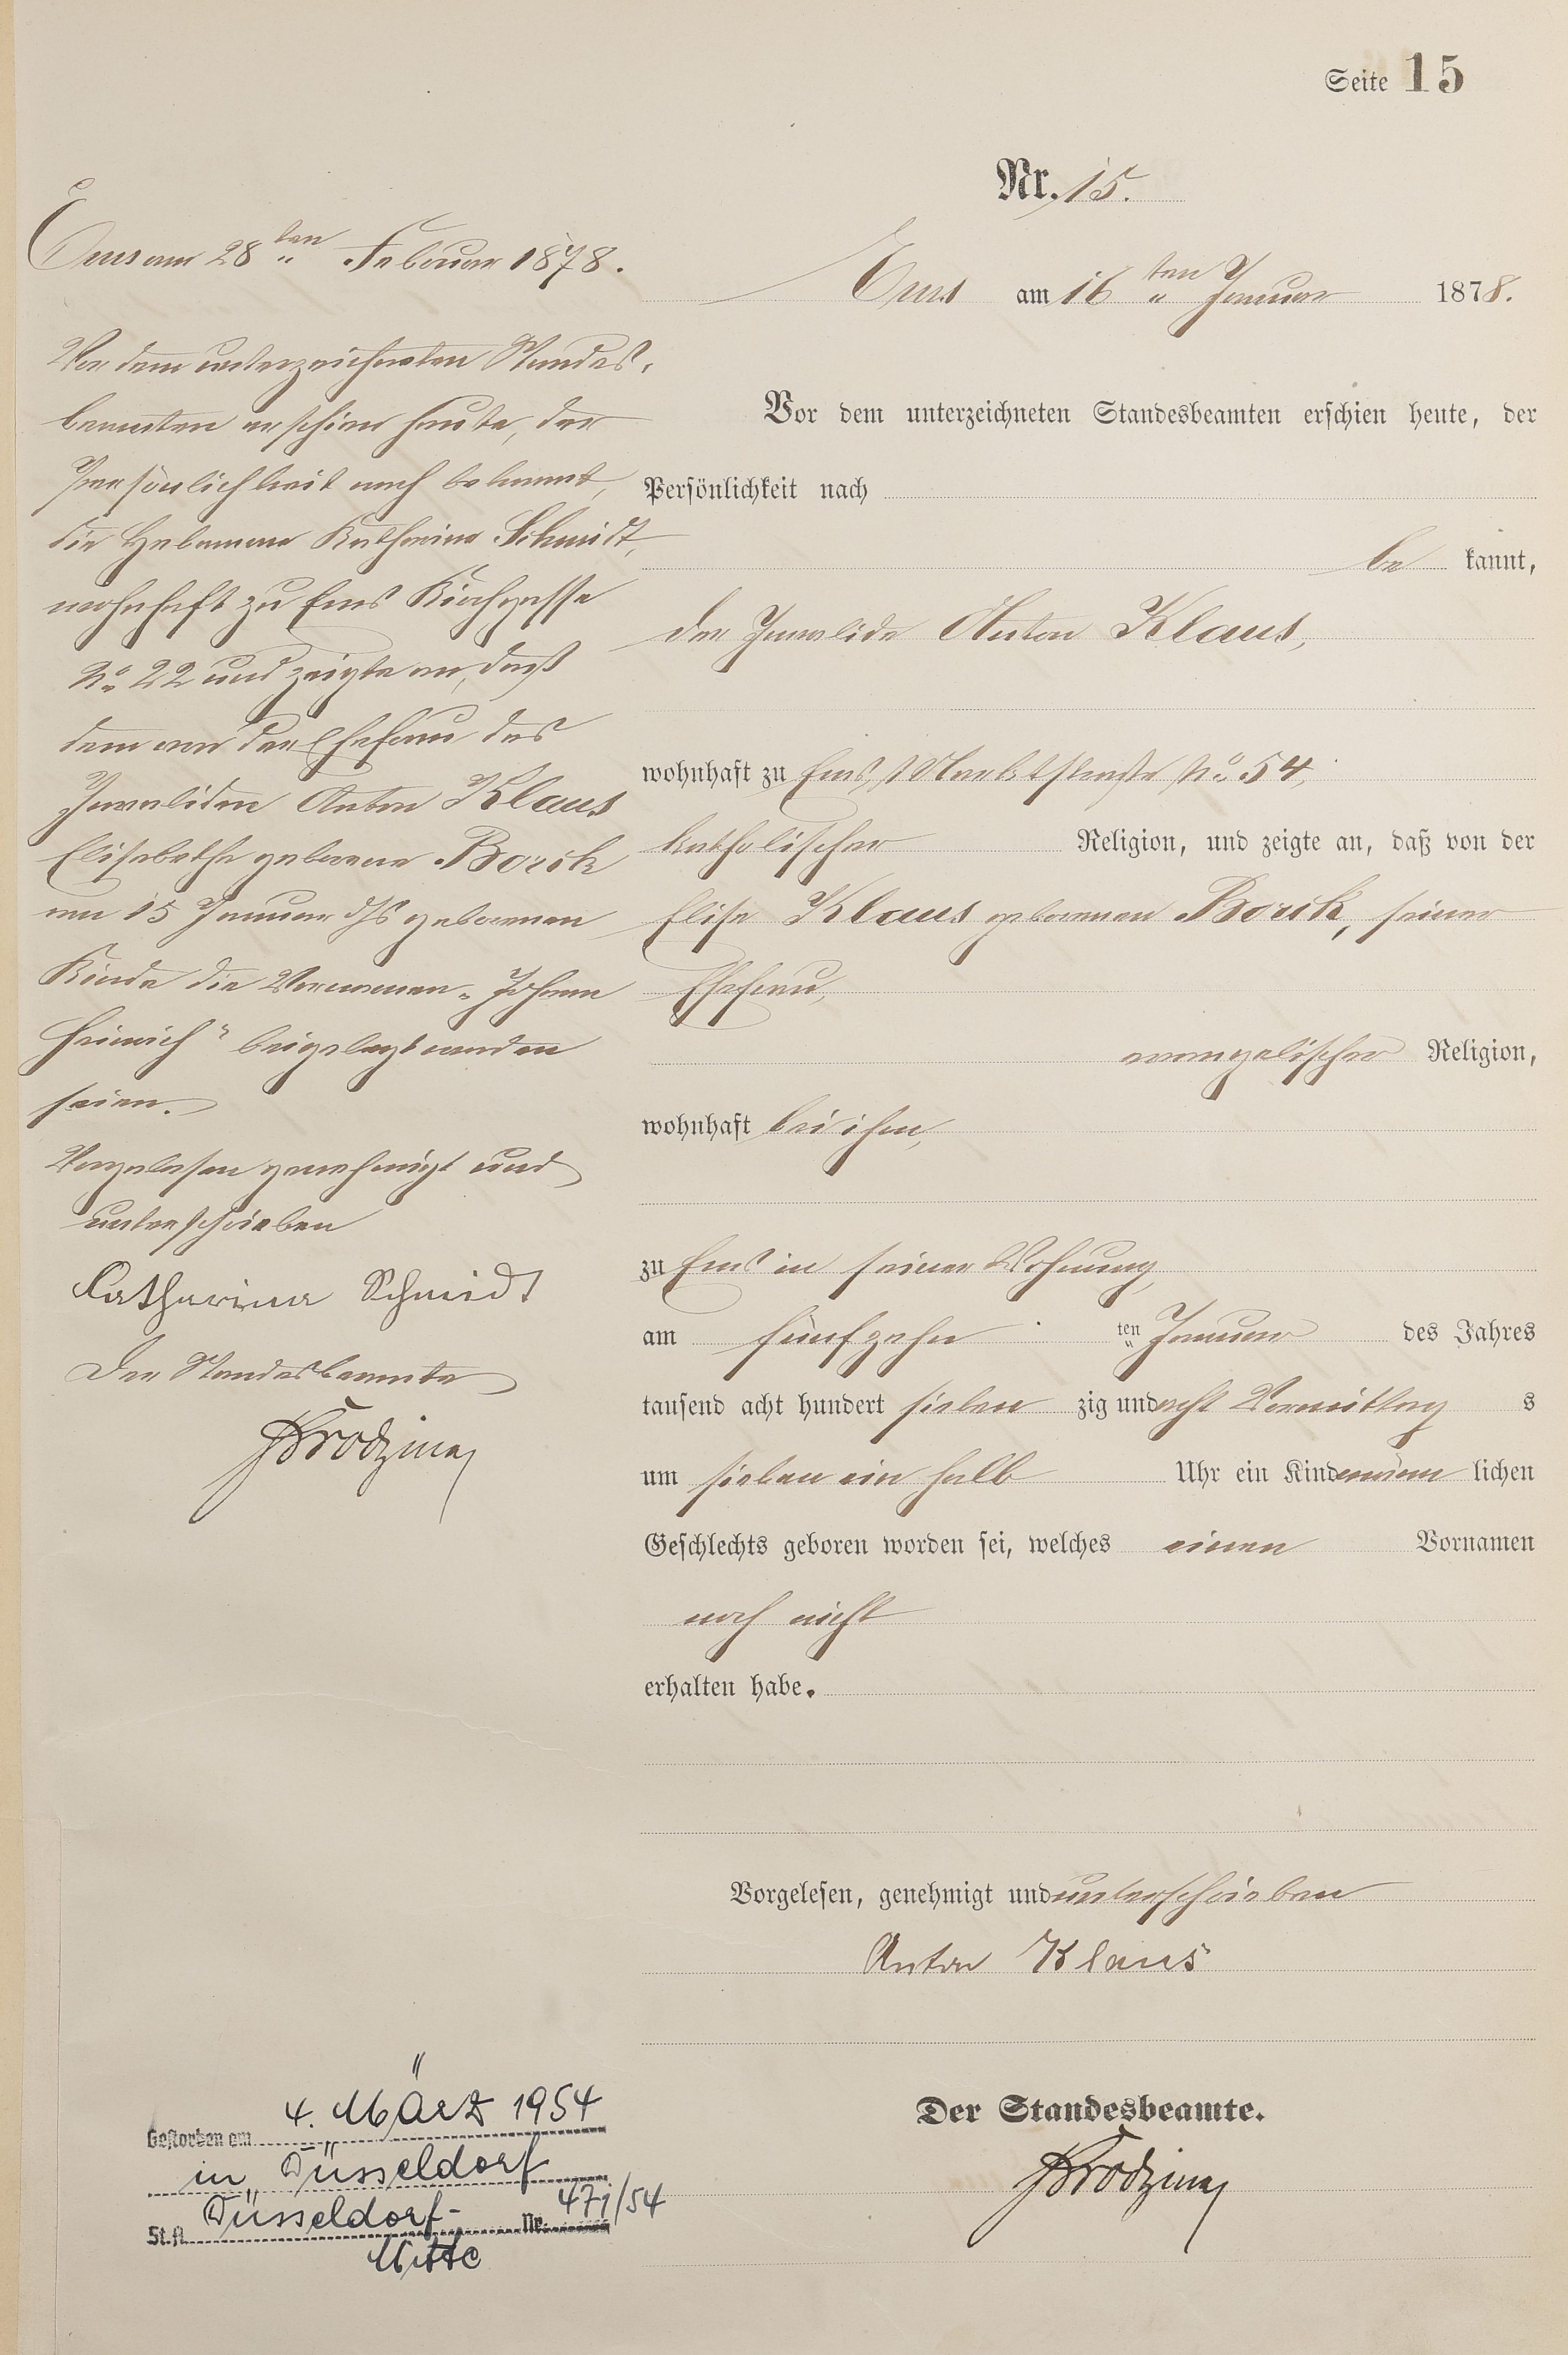 Seite 15
Nr. 15.
Ems am 16ten Januar 1878.
Vor dem unterzeichneten Standesbeamten erschien heute, der
Persönlichkeit nach
be kannt,
der Invalide Anton Klaus,
wohnhaft zu Ems, Marktstraße No 54,
katholischer Religion, und zeigte an, daß von der
Elise Klaus geborenen Borik, seiner
Ehefrau,
evangelischer Religion,
wohnhaft bei ihm,
zu Ems in seiner Wohnung,
am fünfzehn ten Januar des Jahres
tausend acht hundert sieben zig und acht Vormittag s
um sieben ein halb Uhr ein Kind männ lichen
Geschlechts geboren worden sei, welches einen Vornamen
noch nicht
erhalten habe.
Vorgelesen, genehmigt und unterschrieben
Anton Klaus
Der Standesbeamte.
Ems am 28ten Februar 1878.
Vor dem unterzeichneten Standes-
beamten erschien heute, der
Persönlichkeit nach bekannt,
die Hebamme Katharina Schmidt,
wohnhaft zu Ems Kirchgasse
No 22 und zeigte an, daß
dem von der Ehefrau des
Invaliden Anton Klaus
Elisabethe geborene Borik
am 15 Januar d/Js geborenen
Kinde die Vornamen „Johann
Heinrich" beigelegt worden
seien.
Vorgelesen genehmigt und
unterschrieben
Catharina Schmidt
Der Standesbeamte
Gestorben am 4. März 1954
in Düsseldorf
St.A. Düsseldorf- Nr. 471/54
Mitte